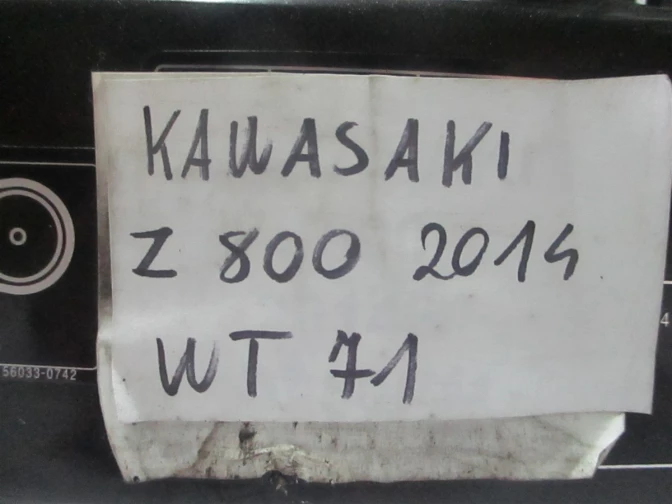 KAWASAKI
Z 800 2014
WT 71
56033-0742
4